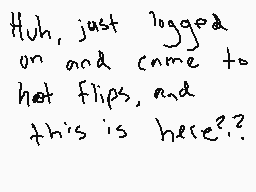 Huh, just logged
on and came to
hot flips, and
this is here??